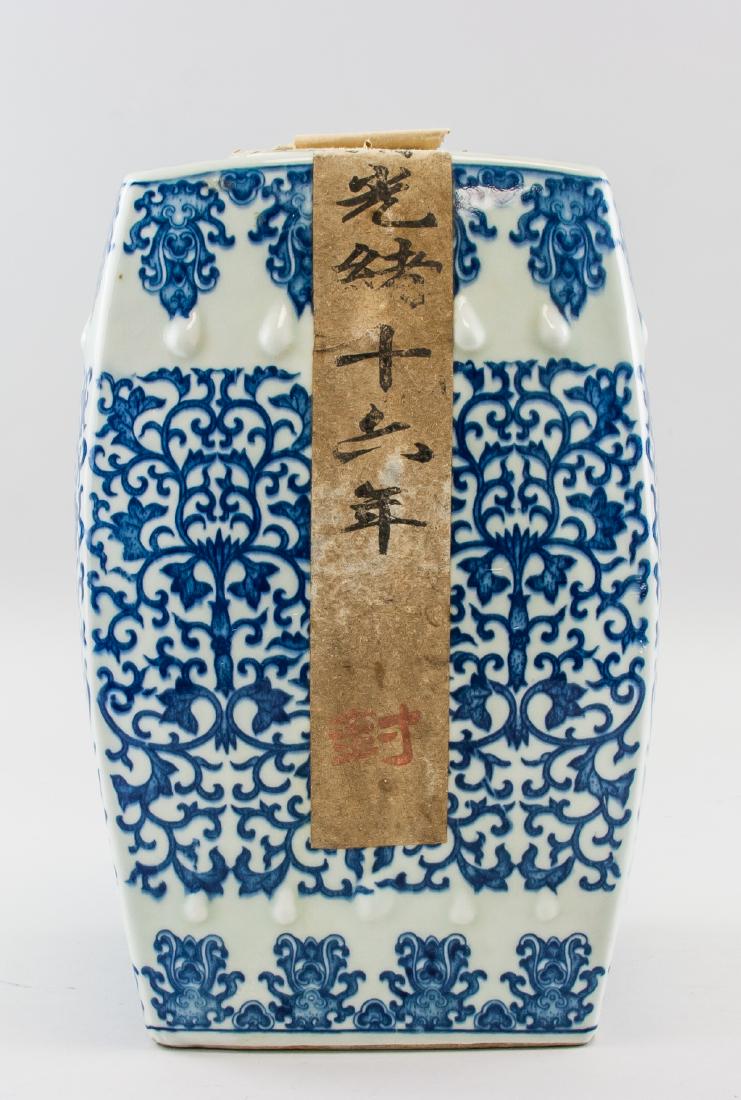 光緒十六年
封